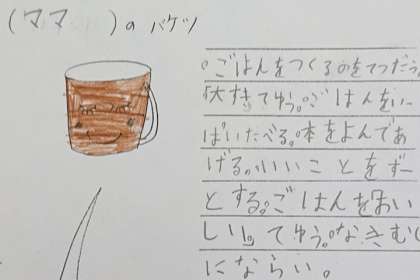 (ママ)のバケツ
・ごはんをつくるのをてつだう
大すきてゆう。ごはんをいっ
ぱいたべる。本をよんであ
げる。いいことをずー
とする。ごはんをおい
しい。てゆう。なきむし
にならい。